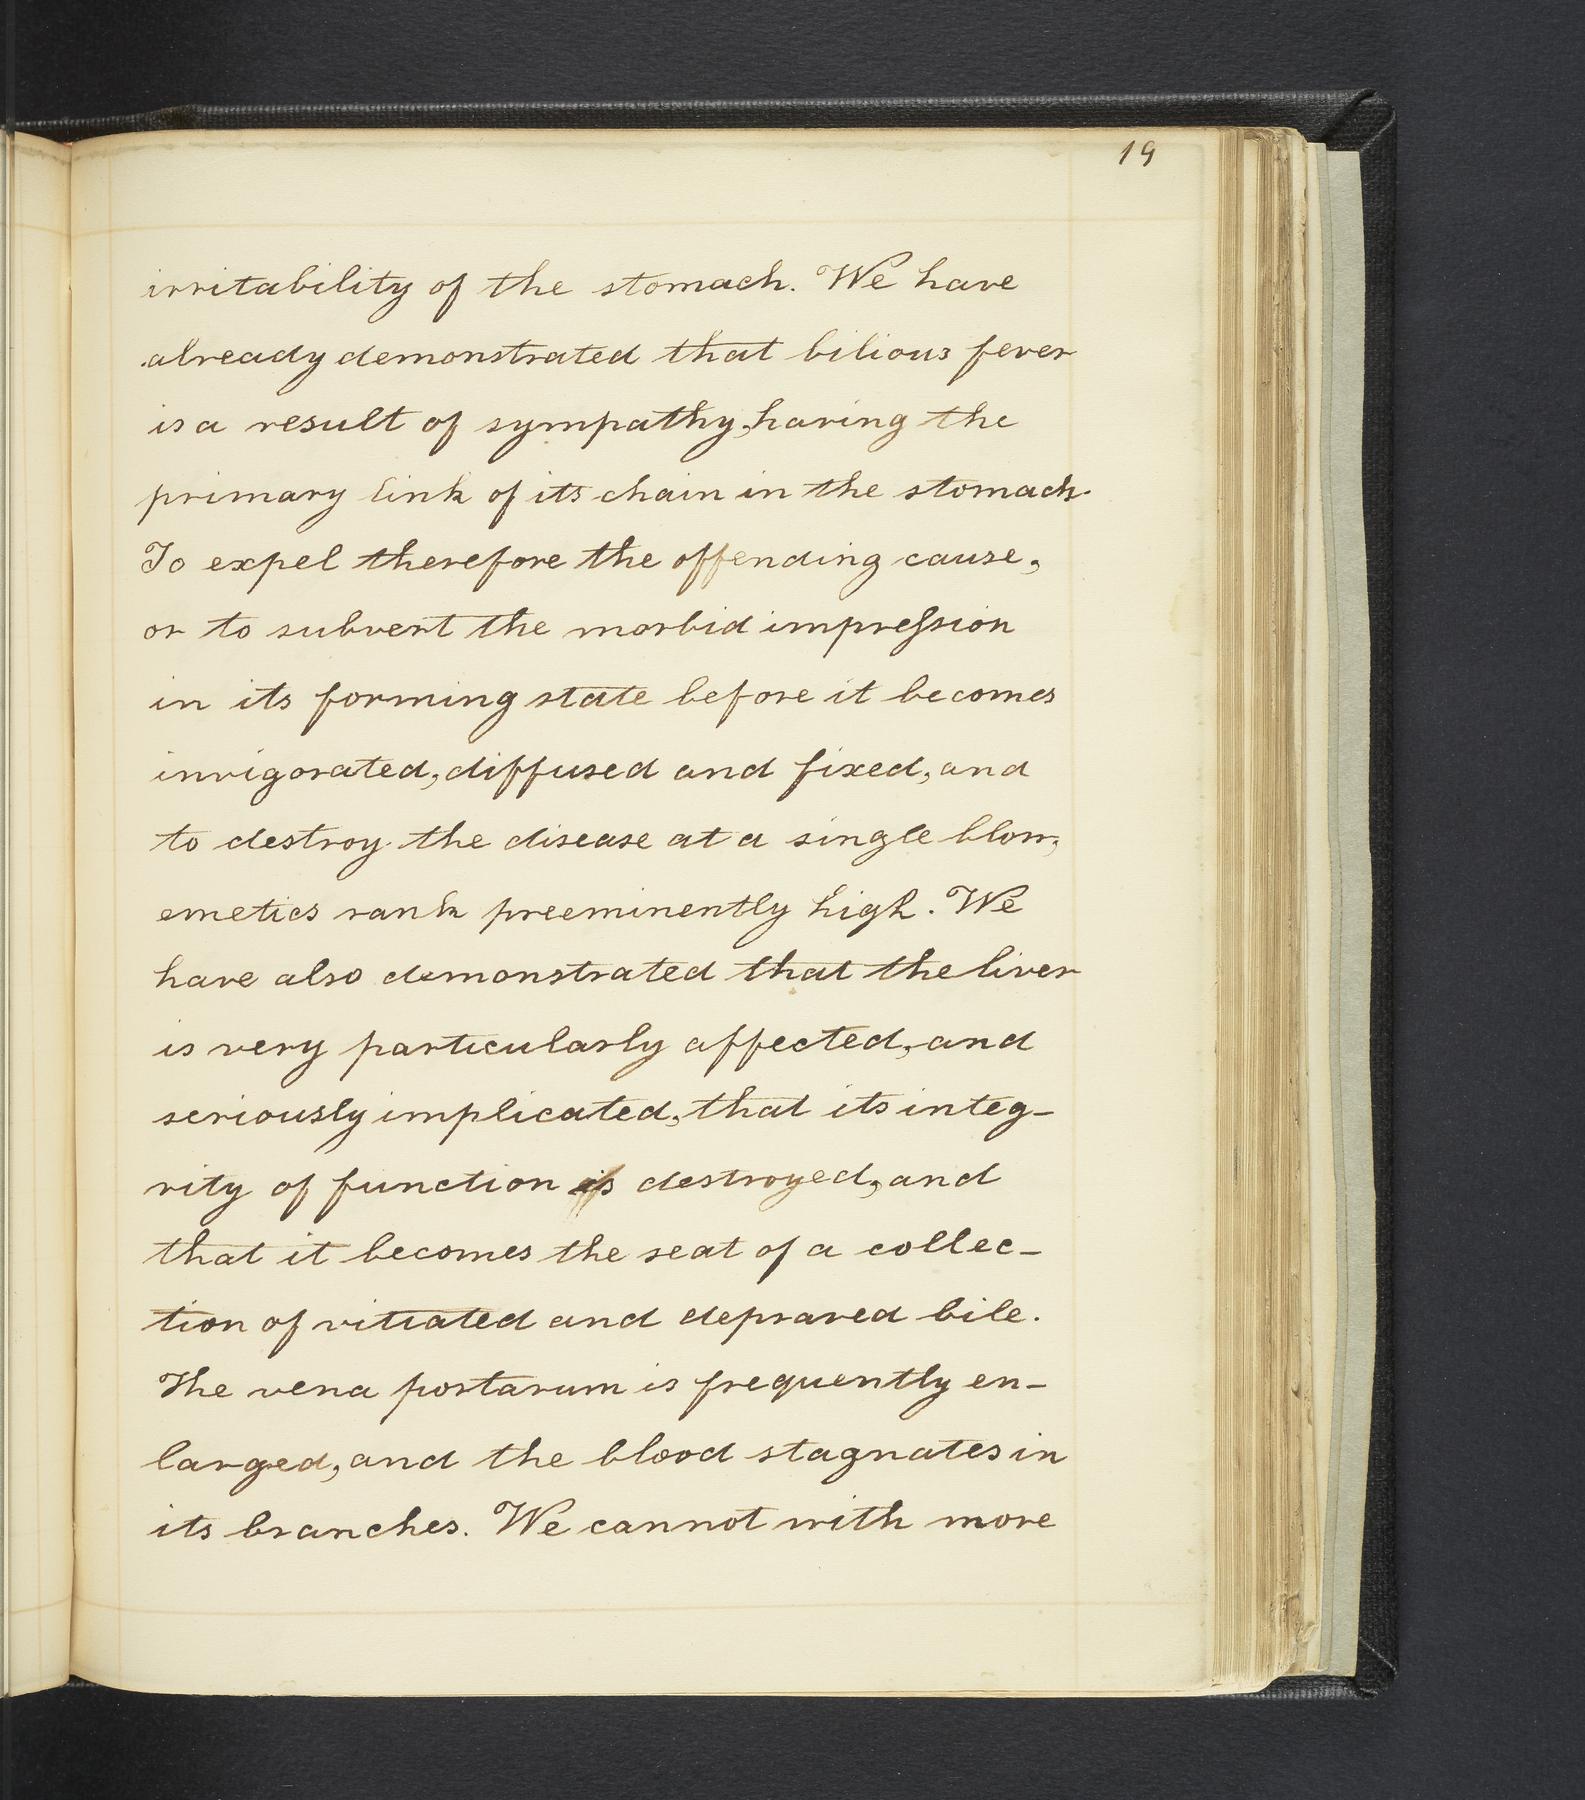 19
irritability of the stomach. We have
already demonstrated that bilious fever
is a result of sympathy, having the
primary link of its chain in the stomach.
To expel therefore the offending cause,
or to subvert the morbid impreſsion
in its forming state before it becomes
invigorated, diffused and fixed, and
to destroy the disease at a single blow,
emetics rank preeminently high. We
have also demonstrated that the liver
is very particularly affected, and
seriously implicated, that its integ-
rity of function is destroyed, and
that it becomes the seat of a collec-
tion of vitiated and depraved bile.
The vena portarum is frequently en-
larged, and the blood stagnates in
its branches. We cannot with more